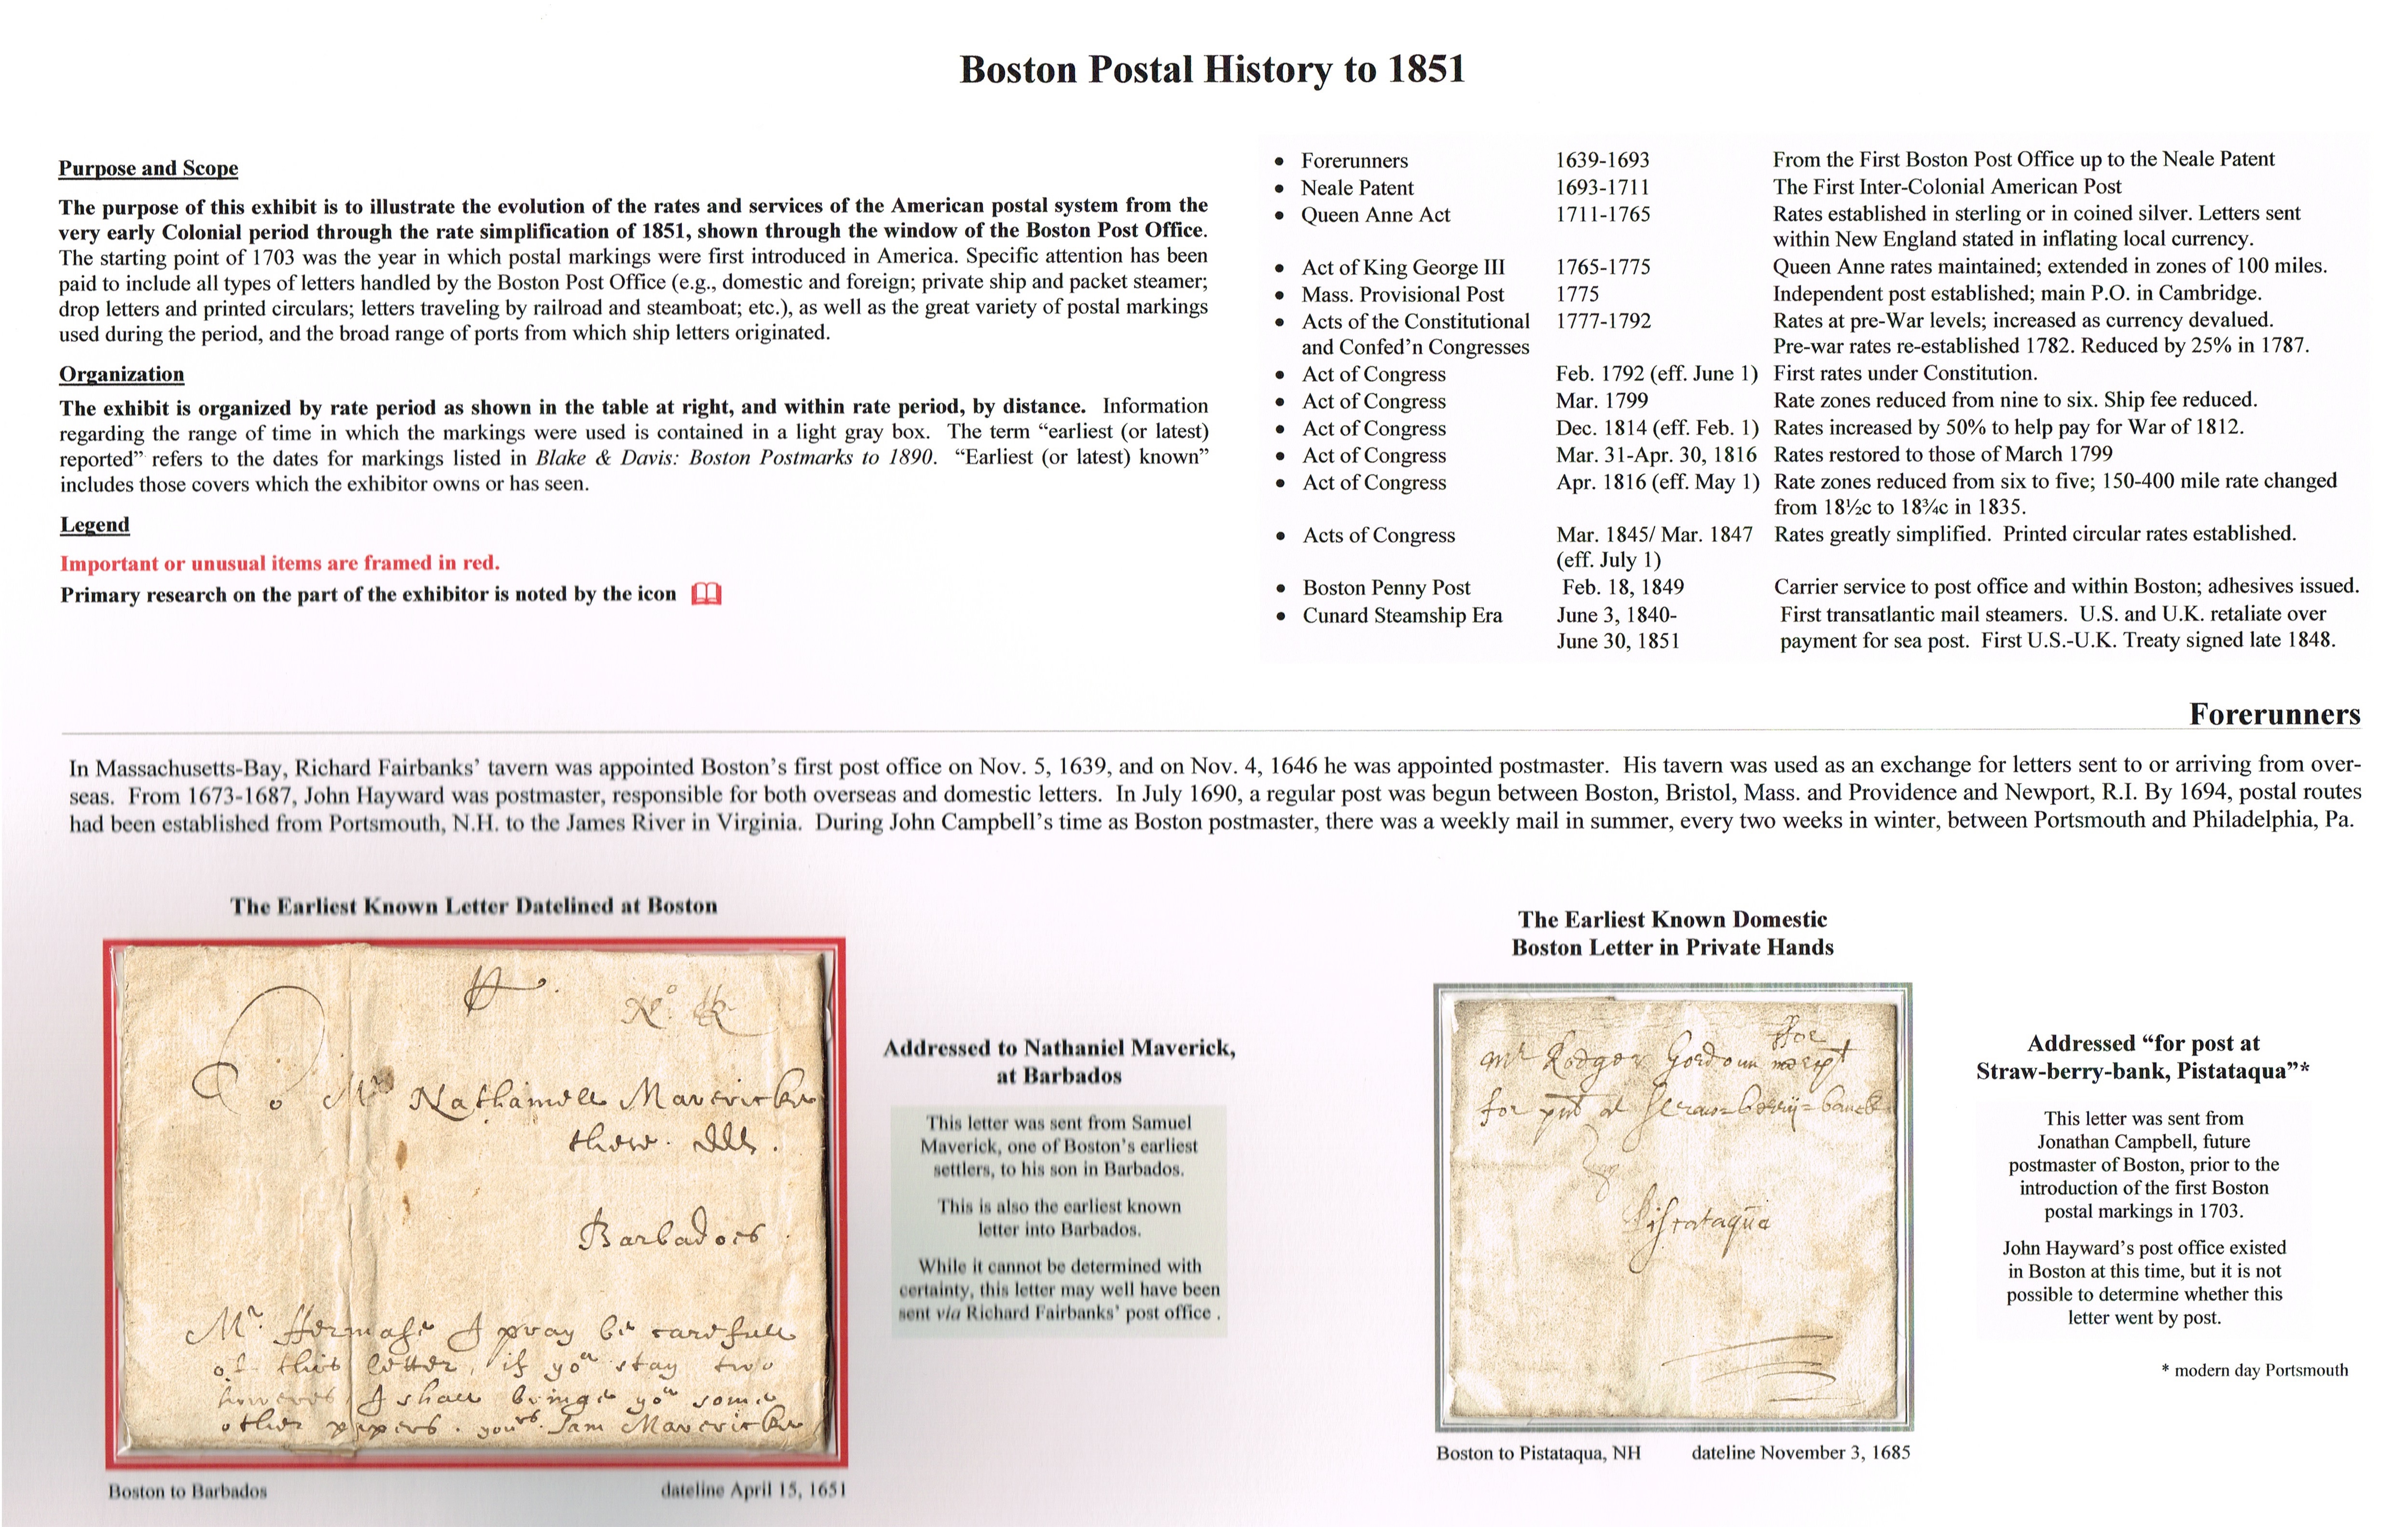 Boston Postal History to 1851
Purpose and Scope
The purpose of this exhibit is to illustrate the evolution of the rates and services of the American postal system from the
very early Colonial period through the rate simplification of 1851, shown through the window of the Boston Post Office.
The starting point of 1703 was the year in which postal markings were first introduced in America. Specific attention has been
paid to include all types of letters handled by the Boston Post Office (e.g., domestic and foreign; private ship and packet steamer;
drop letters and printed circulars; letters traveling by railroad and steamboat; etc.), as well as the great variety of postal markings
used during the period, and the broad range of ports from which ship letters originated.
Organization
The exhibit is organized by rate period as shown in the table at right, and within rate period, by distance. Information
regarding the range of time in which the markings were used is contained in a light gray box. The term “earliest (or latest)
reported” refers to the dates for markings listed in Blake & Davis: Boston Postmarks to 1890. “Earliest (or latest) known”
includes those covers which the exhibitor owns or has seen.
Legend
Important or unusual items are framed in red.
Primary research on the part of the exhibitor is noted by the icon
• Forerunners 1639-1693 From the First Boston Post Office up to the Neale Patent
• Neale Patent 1693-1711 The First Inter-Colonial American Post
• Queen Anne Act 1711-1765 Rates established in sterling or in coined silver. Letters sent
within New England stated in inflating local currency.
• Act of King George III 1765-1775 Queen Anne rates maintained; extended in zones of 100 miles.
• Mass. Provisional Post 1775 Independent post established; main P.O. in Cambridge.
• Acts of the Constitutional 1777-1792 Rates at pre-War levels; increased as currency devalued.
and Confed’n Congresses Pre-war rates re-established 1782. Reduced by 25% in 1787.
• Act of Congress Feb. 1792 (eff. June 1) First rates under Constitution.
• Act of Congress Mar. 1799 Rate zones reduced from nine to six. Ship fee reduced.
• Act of Congress Dec. 1814 (eff. Feb. 1) Rates increased by 50% to help pay for War of 1812.
• Act of Congress Mar. 31-Apr. 30, 1816 Rates restored to those of March 1799
• Act of Congress Apr. 1816 (eff. May 1) Rate zones reduced from six to five; 150-400 mile rate changed
from 18½c to 18¾c in 1835.
• Acts of Congress Mar. 1845/ Mar. 1847 Rates greatly simplified. Printed circular rates established.
(eff. July 1)
• Boston Penny Post Feb. 18, 1849 Carrier service to post office and within Boston; adhesives issued.
• Cunard Steamship Era June 3, 1840- First transatlantic mail steamers. U.S. and U.K. retaliate over
June 30, 1851 payment for sea post. First U.S.-U.K. Treaty signed late 1848.
Forerunners
In Massachusetts-Bay, Richard Fairbanks’ tavern was appointed Boston’s first post office on Nov. 5, 1639, and on Nov. 4, 1646 he was appointed postmaster. His tavern was used as an exchange for letters sent to or arriving from over-
seas. From 1673-1687, John Hayward was postmaster, responsible for both overseas and domestic letters. In July 1690, a regular post was begun between Boston, Bristol, Mass. and Providence and Newport, R.I. By 1694, postal routes
had been established from Portsmouth, N.H. to the James River in Virginia. During John Campbell’s time as Boston postmaster, there was a weekly mail in summer, every two weeks in winter, between Portsmouth and Philadelphia, Pa.
The Earliest Known Letter Datelined at Boston
To Mr Nathaniell Mavericke
there
Barbados
Mr. I pray be carefull
of this letter, if you stay two
howeres I shall bringe you some
other papers. yours Sam Mavericke
Boston to Barbados dateline April 15, 1651
Addressed to Nathaniel Maverick,
at Barbados
This letter was sent from Samuel
Maverick, one of Boston’s earliest
settlers, to his son in Barbados.
This is also the earliest known
letter into Barbados.
While it cannot be determined with
certainty, this letter may well have been
sent via Richard Fairbanks’ post office .
The Earliest Known Domestic
Boston Letter in Private Hands
ffor
Mr Rodger Gordoun
for post at Straw=berry=banck
Pistataqua
Boston to Pistataqua, NH dateline November 3, 1685
Addressed “for post at
Straw-berry-bank, Pistataqua”*
This letter was sent from
Jonathan Campbell, future
postmaster of Boston, prior to the
introduction of the first Boston
postal markings in 1703.
John Hayward’s post office existed
in Boston at this time, but it is not
possible to determine whether this
letter went by post.
* modern day Portsmouth